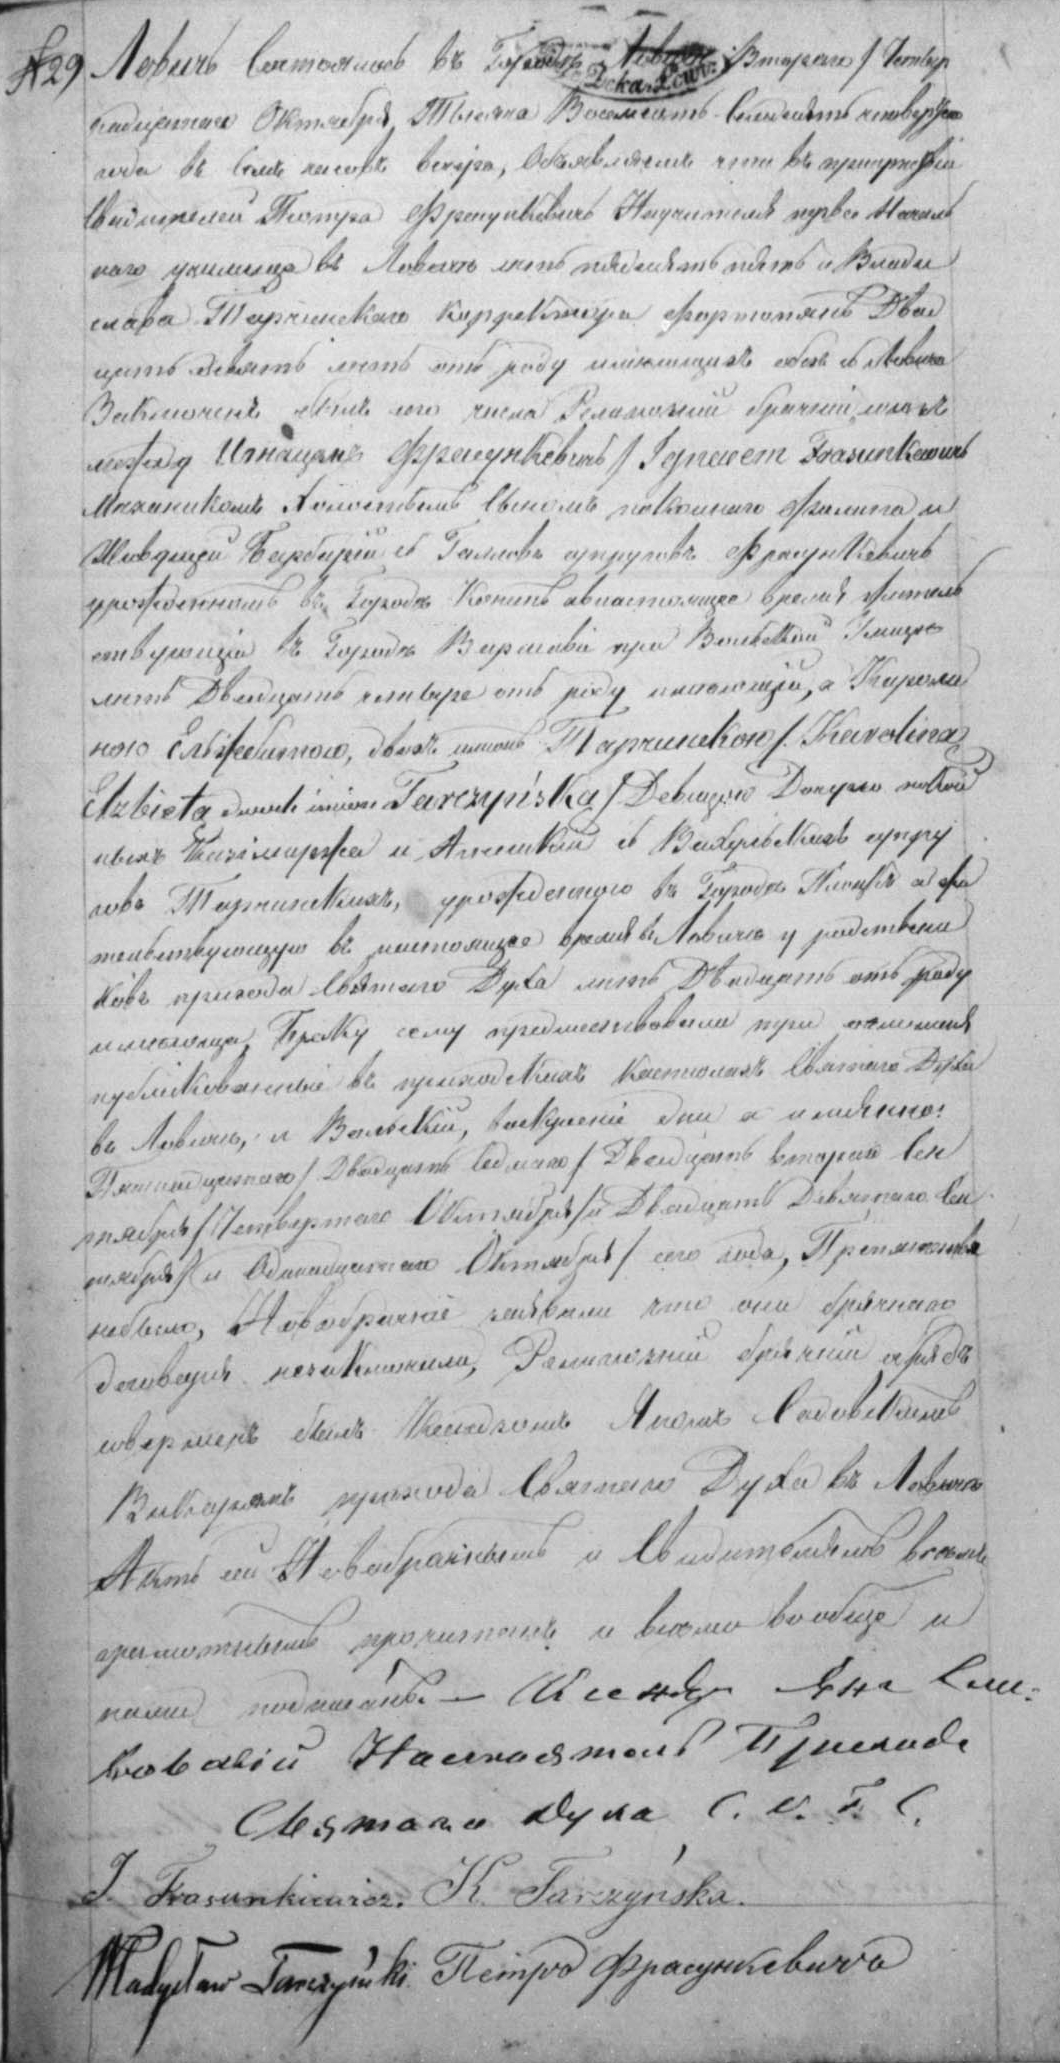 № 29 Ловичъ Состоялось въ Городѣ Ловичѣ Втораго / Четыр
надцатаго Октября Тысяча Восемсотъ Семдесятъ четвертаго
года въ семь часовъ вечера, Объявляемъ что въ присутствіи
Свидѣтелей Петра Фрасункевичъ Научителя перваго Началь
наго училища въ Ловичѣ лѣтъ пядесятъ пять и Влади
слава Тарчинскаго корректора фортопянъ Двад
цать девять лѣтъ отъ роду имѣющихъ обохъ съ Ловича
Заключенъ былъ сего числа Религіозный брачный союзъ
между Игнацемъ Фрасункевичъ / Ignacem Frasunkewicz
Механикомъ Холостымъ Сыномъ покойнаго Филипа и
Живущей Барбары съ Галловъ супруговъ Фрасункевичъ
урожденномъ въ Городѣ Конинѣ внастоящее время житель
ствующій въ Городѣ Варшавѣ при Вольской Улицѣ
лѣтъ Двадцать четыре отъ роду имѣющій, а Кароли
ною Ельжбетою, двохъ имянъ Тарчинскою /. Karolina
Elzbieta dwóch imion Tarczyńska / Девицою Дочерью покой
ныхъ Казимиржа и Анелли съ супру
говъ Тарчинскихъ, урожденною въ Городѣ Плоцкѣ а жи
тельствующую въ настоящее время въ Ловичѣ у родствени
ковъ прихода Святаго Духа лѣтъ Двадцать отъ роду
имѣющая, Браку сему предшествовали три оглашенія
публикованные въ приходскихъ костелахъ Святаго Духа
въ Ловичѣ, и Вольскій, воскресніе дни а имянно:
Пятнадцатаго / Двадцать Седмаго / Двадцать втораго Сен
тября / Четвертаго Октября / и Двадцать Девятаго Сен
тября / и Одинадцатаго Октября / сего года, Препятствія
небыло, Новобрачніе заявили что они брачнаго
договора незаключили, Религіозный брачный обрядъ
совершенъ былъ Ксендзомъ Яномъ Садовскимъ
Викаріямъ прихода Святаго Духа въ Ловичѣ
Актъ сей Новобрачнымъ и Свидѣтелямъ всѣмъ
грамотнымъ прочитанъ и всѣми вообще и
нами подписанъ. — Ксендзъ Янъ
Настоятель Прихода
Святаго Духа С. У. Г. С.
I. Frasunkiewicz. K. Tarczyńska.
Władysław Tarczyński. Петръ Фрасункевичъ